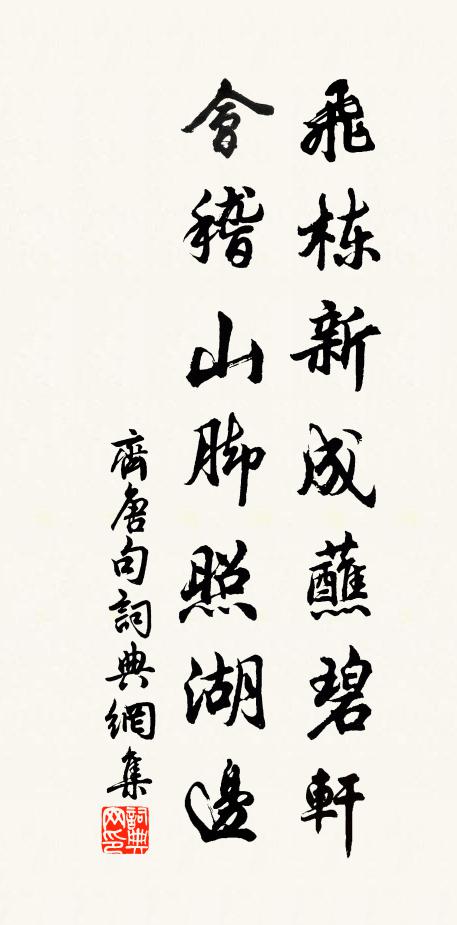 飛棟新成蘸碧軒
會稽山脚照湖邊
齊唐句詞典網集
詞典网印